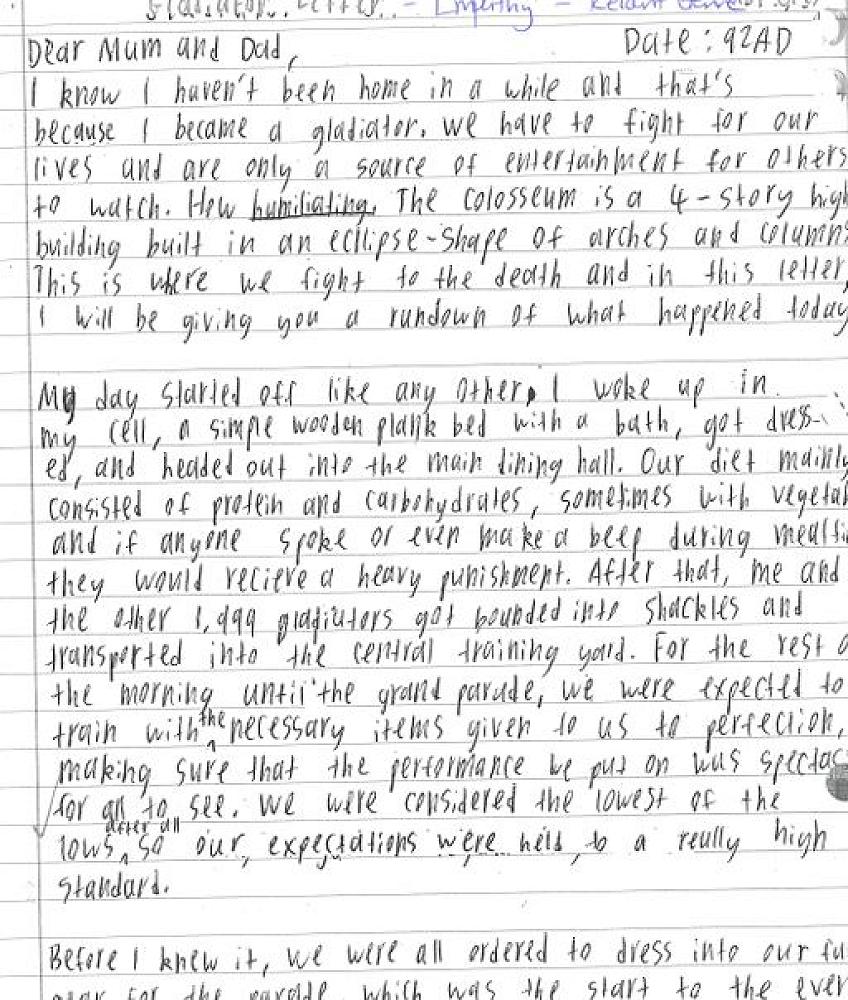 Gladiator Letter - Empathy -
Dear Mum and Dad, Date: 92AD
I know I haven't been home in a while and that's
because I became a gladiator. We have to fight for our
lives and are only a source of entertainment for others
to watch. How humiliating. The colosseum is a 4-story high
building built in an ecllipse-shape of arches and columns
This is where we fight to the death and in this letter,
I will be giving you a rundown of what happened today
My day started off like any other, I woke up in
my cell, a simple wooden plank bed with a bath, got dress-
ed, and headed out into the main dining hall. Our diet mainly
consisted of protein and carbohydrates, sometimes with vegetab
and if anyone spoke or even make a beep during mealti
they would recieve a heavy punishment. After that, me and
the other 1,999 gladiators got bounded into shackles and
transported into the central training yard. For the rest o
the morning until the grand parade, we were expected to
train with the necessary items given to us to perfection,
making sure that the performance we put on was spectac
for all to see. We were considered the lowest of the
lows after all, so our expectations were held to a really high
standard.
Before I knew it, we were all ordered to dress into our fu
gear for the parade, which was the start to the even